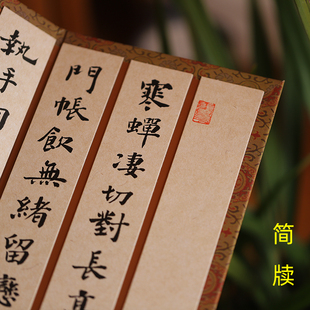 寒蟬凄切對長
門帳飲無緒留戀
執手
简牍